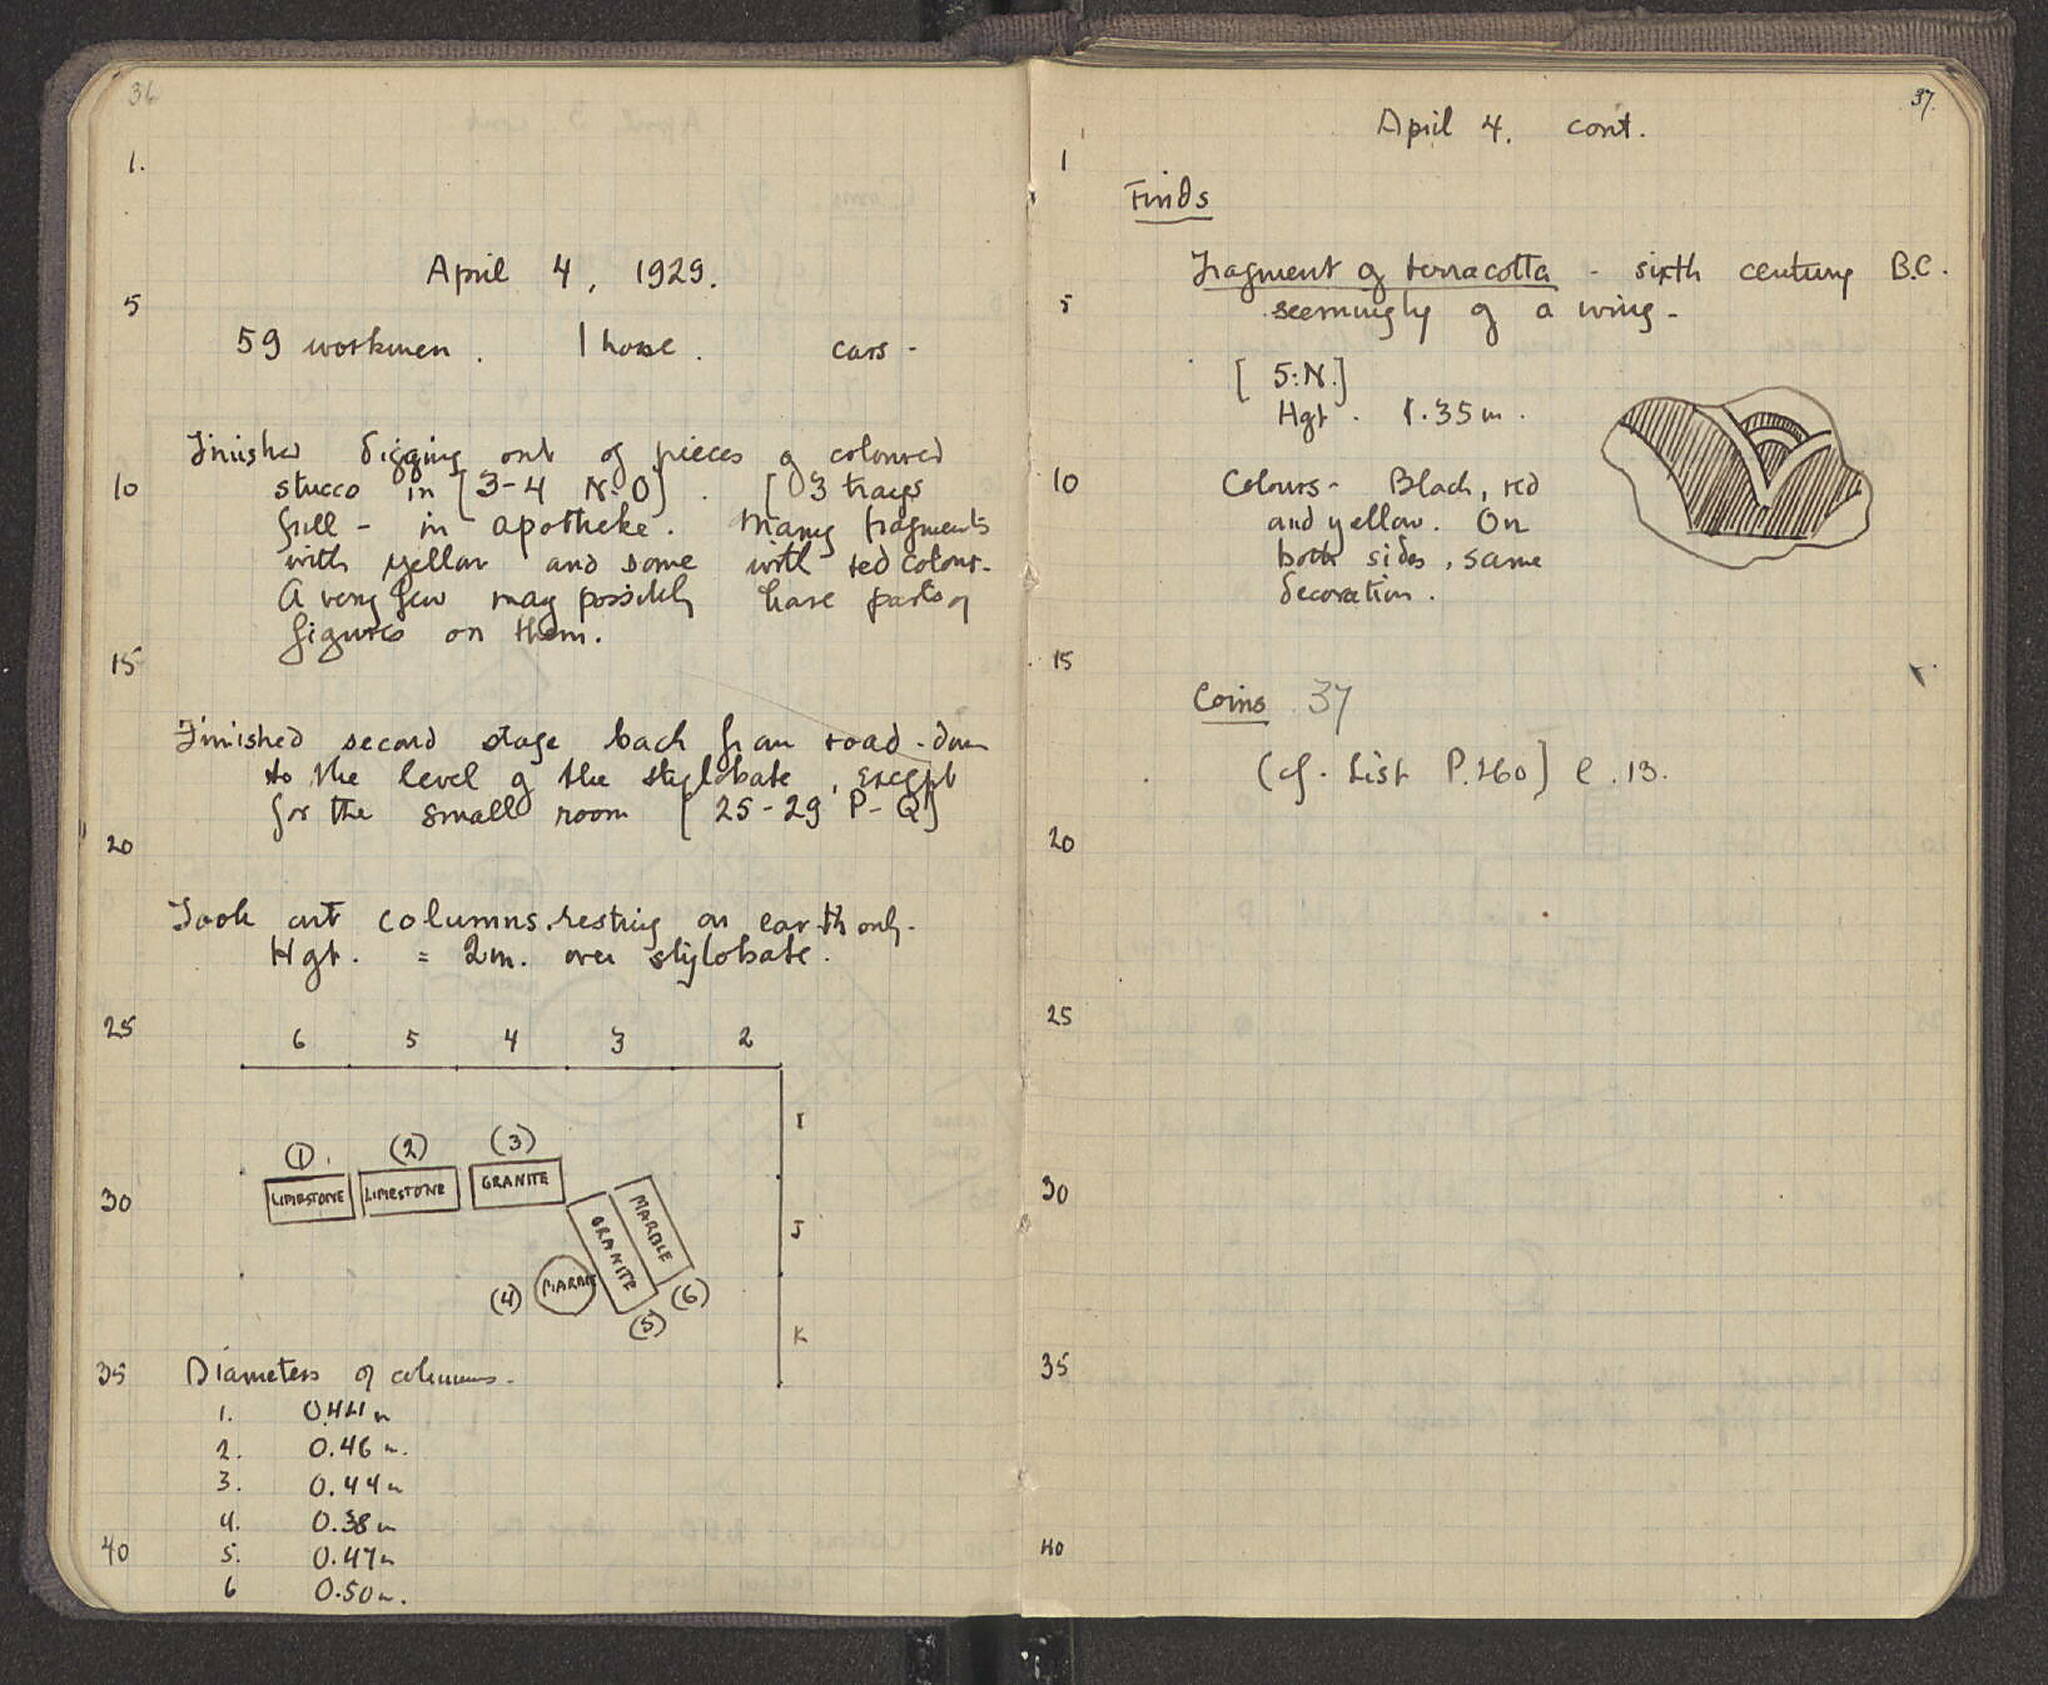 36
1.
April 4, 1929.
5
59 workmen. 1 horse. cars -
Finished digging out of pieces of coloured
10 stucco in [3-4 N:O]. [3 trays
full - in apotheke. Many fragments
with yellow and some with red colour.
A very few may possibly have parts of
figures on them.
15
Finished second stage back from road - down
to the level of the stylobate, except
for the small room [25-29 P-Q]
20
Took out columns resting on earth only.
Hgt. = 2m. over stylobate.
25
6 5 4 3 2
I
(1) (2) (3)
30 LIMESTONE LIMESTONE GRANITE
MARBLE
GRANITE
J
(4) MARBLE (6)
(5)
K
35 Diameters of columns -
1. 0.44m
2. 0.46m.
3. 0.44m
4. 0.38m
40 5. 0.47m
6 0.50m.
37.
April 4. cont.
1
Finds
Fragment of terracotta - sixth century B.C.
5 seemingly of a wing -
[5:N.]
Hgt. 1.35m.
10 Colours - Black, red
and yellow. On
both sides, same
decoration.
15
Coins 37
(cf. List P.260] e.13.
20
25
30
35
40